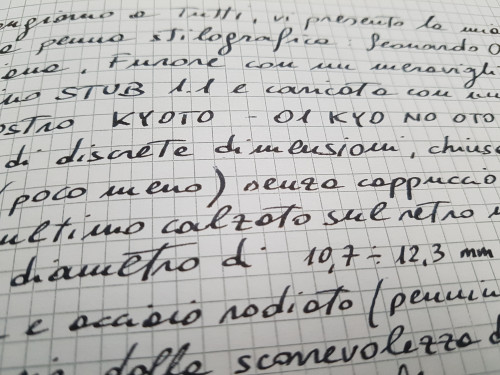 ngiorno a Tutti, vi presento la mia
e penna stilografica: Leonardo O
ione. Furore con un meravigli
no STUB 1.1 e caricata con un
ostro KYOTO - 01 KYO NO OTO
di discrete dimensioni, chius
(poco meno) senza cappuccio
ultimo calzato sul retro
diametro di 10,7 ÷ 12,3 mm
e acciaio rodiato (pennin
dalla scanevolezza d